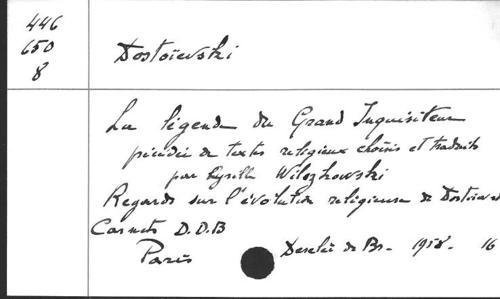 446
650
8
Dostoïevski
La légende du Grand Inquisiteur
précédée de textes religieux choisis et traduits
par Cyrille Wilczkowski
Regards sur l'évolution religieuse de Dostoïevs
Carnets D.D.B
Paris Desclée de Br- 1958- 16